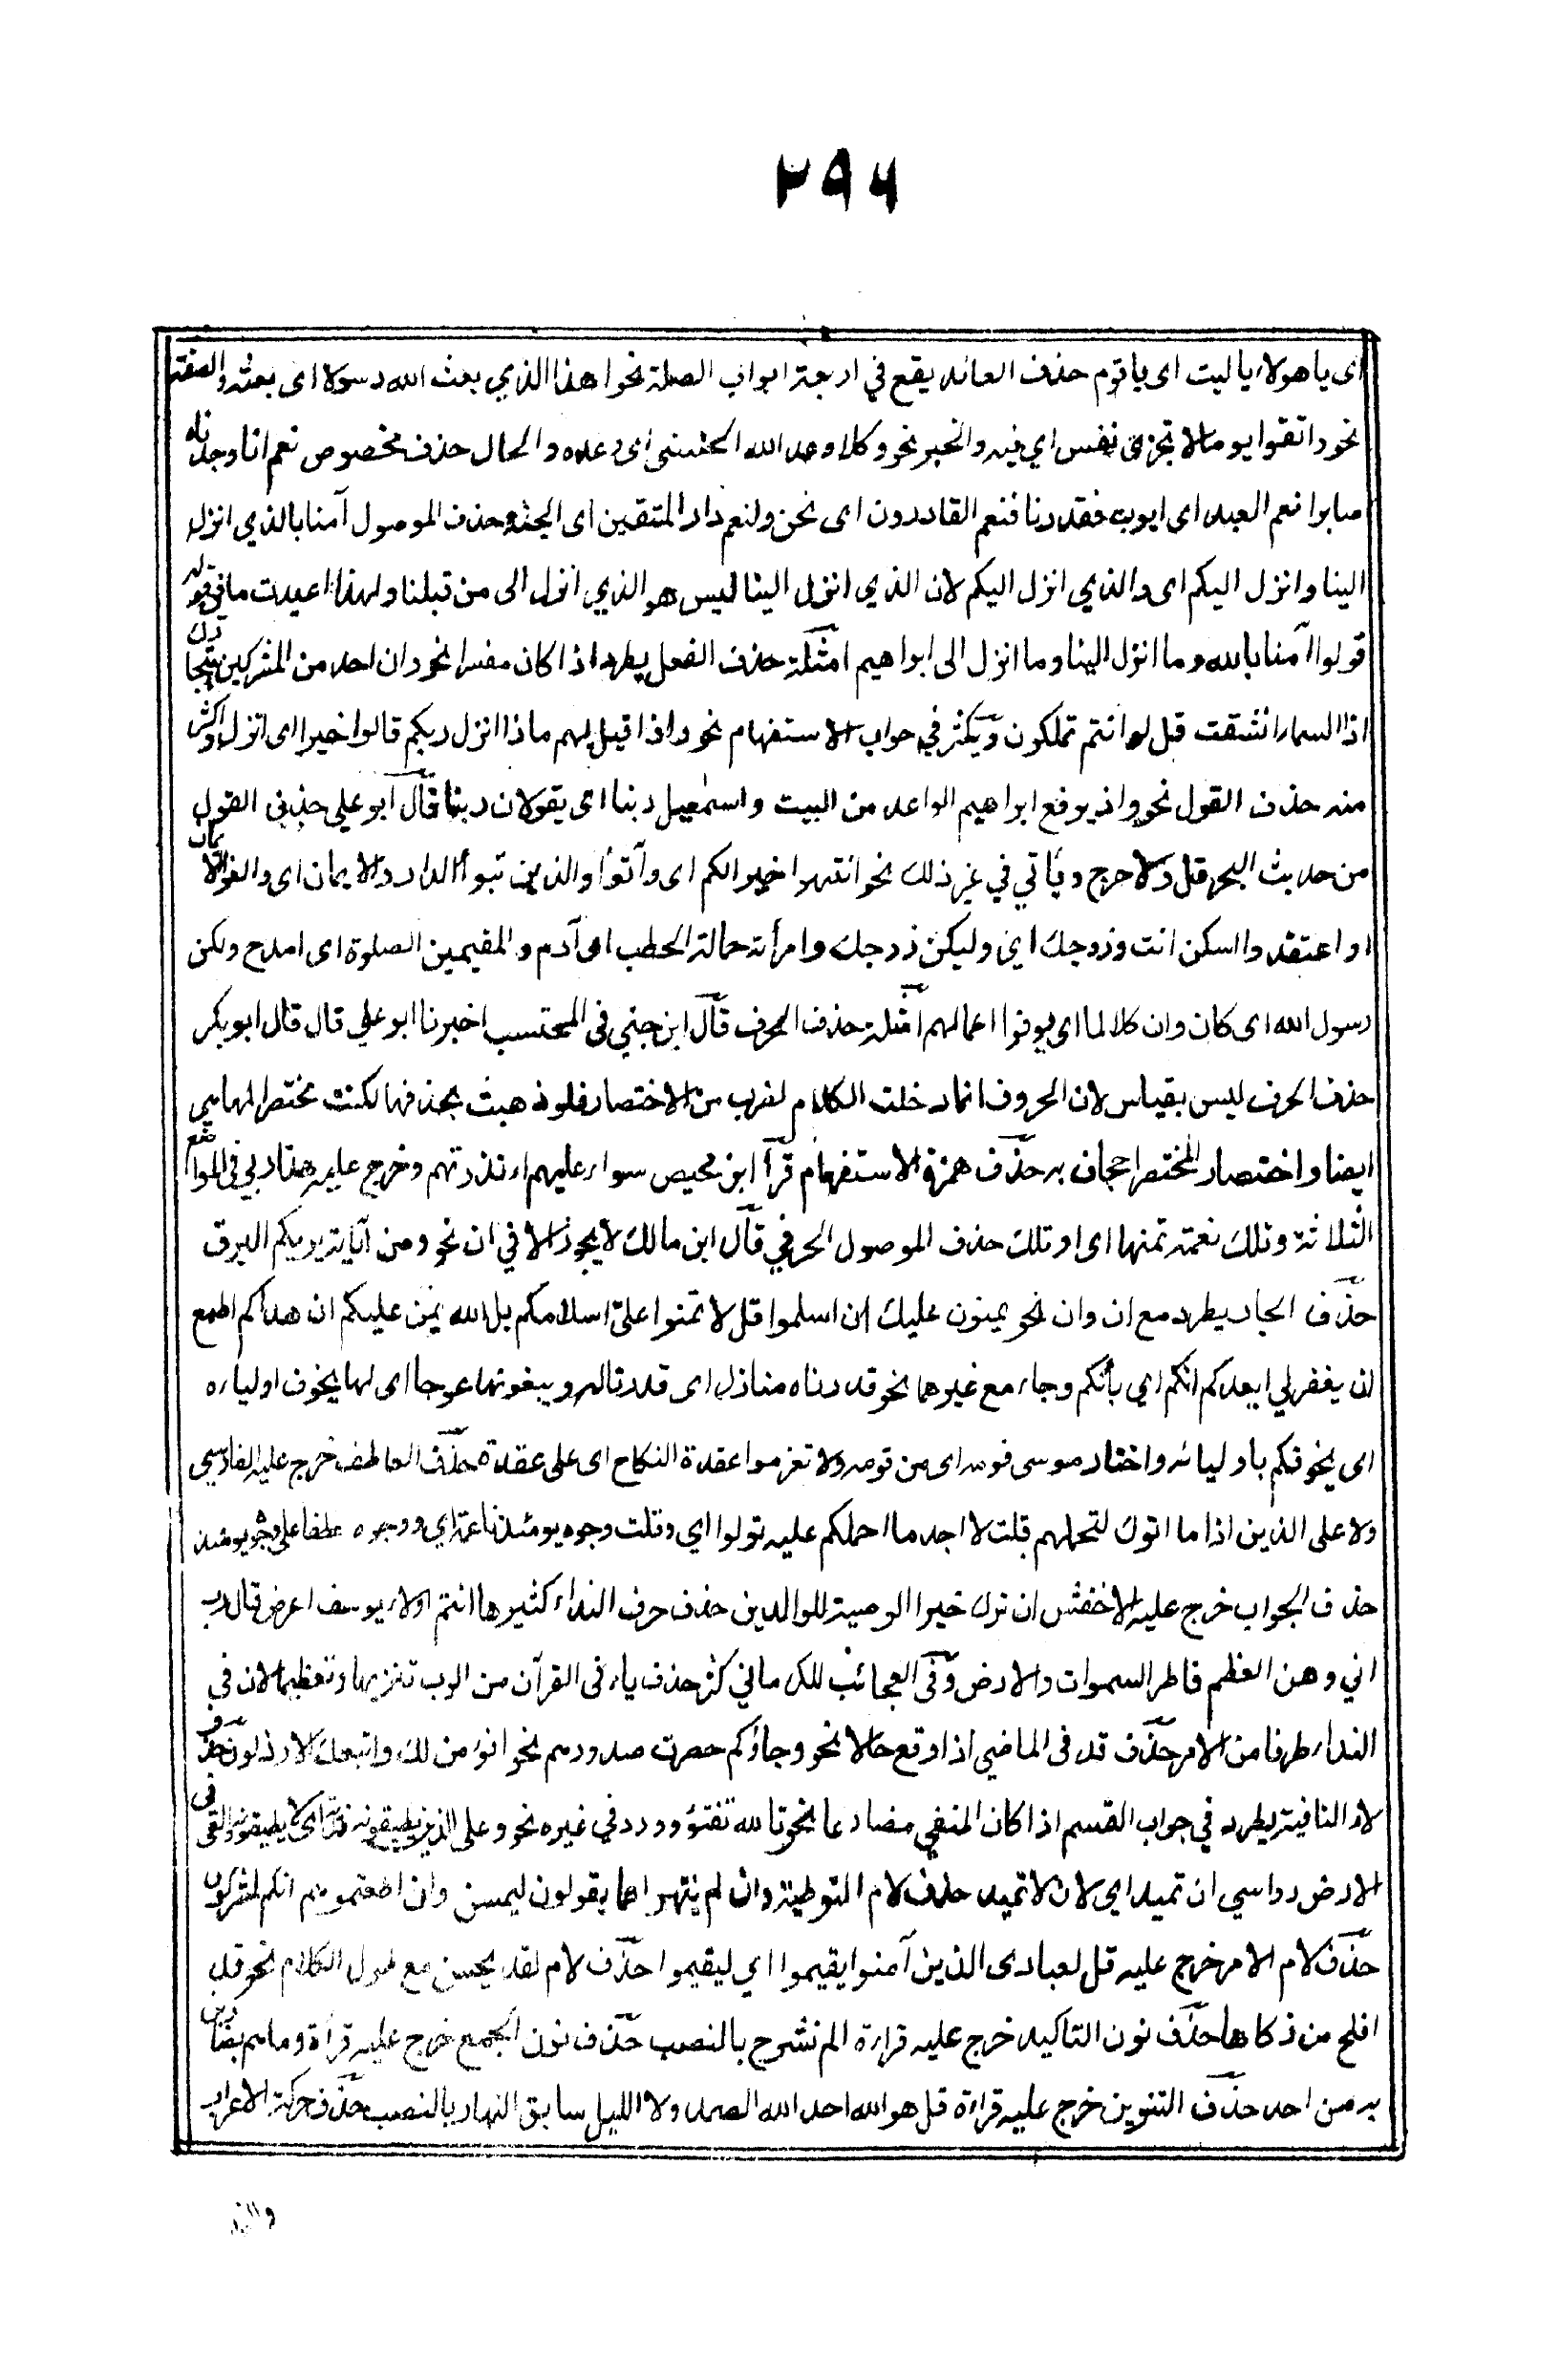 ٢٩٦
اى يا هولاء يا ليت اى يا قوم حذف العائد يقع في اربعة ابواب الصلة نحو اهذا الذي بعث الله رسولا اى بعثه والصفة
نحو واتقوا يوما لا تجزى نفس اي فيه والخبر نحو وكلا وعد الله الحسنى اى وعده والحال حذف مخصوص نعم انا وجدناه
صابرا نعم العبد اى ايوب فقدرنا فنعم القادرون اى نحن ولنعم دار المتقين اى الجنة حذف الموصول آمنا بالذي انزل
الينا وانزل اليكم اى والذي انزل اليكم لان الذي انزل الينا ليس هو الذي انزل الى من قبلنا ولهذا اعيدت ما في قوله
قولوا آمنا بالله وما انزل الينا وما انزل الى ابراهيم امثلة حذف الفعل يطرد اذا كان مفسرا نحو وان احد من المشركين استجارك
اذا السماء انشقت قل لو انتم تملكون ويكثر في جواب الاستفهام نحو واذا قيل لهم ماذا انزل ربكم قالوا خيرا اى انزل واكثر
منه حذف القول نحو واذ يرفع ابراهيم القواعد من البيت واسمعيل ربنا اى يقولان ربنا قال ابو علي حذف القول
من حديث البحر قل ولا حرج ويأتي في غير ذلك نحو انتهوا خيرا لكم اى وآتوا والذين تبوأ الدار والايمان اى والفوا الايمان
او اعتقدوا اسكن انت وزوجك اي وليكن زوجك وامرأته حمالة الحطب اى آدم والمقيمين الصلوة اى امدح ولكن
رسول الله اى كان وان كلا لما اى يوفوا اعمالهم امثلة حذف الحرف قال ابن جني في المحتسب اخبرنا ابو علي قال قال ابو بكر
حذف الحرف ليس بقياس لان الحروف انما دخلت الكلام لضرب من الاختصار فلو ذهبت بحذفها لكنت مختصرا لها هي
ايضا واختصار المختصر اجحاف به حذف همزة الاستفهام قرأ ابن محيصن سواء عليهم انذرتهم وخرج عليه هذا ربي في المواضع
الثلاثة وتلك نعمة تمنها اى او تلك حذف الموصول الحرفي قال ابن مالك لا يجوز الا في ان نحو ومن آياته يريكم البرق
حذف الجار يطرد مع ان وان نحو يمنون عليك ان اسلموا قل لا تمنوا علي اسلامكم بل الله يمن عليكم ان هداكم اطمع
ان يغفر لي ايعدكم انكم اي بأنكم وجاء مع غيرهما نحو قدرناه منازل اى قدرنا له ويبغونها عوجا اى لها يخوف اولياءه
اى يخوفكم باوليائه واختار موسى قومه اى من قومه ولا تعزموا عقدة النكاح اى على عقدة حذف العاطف خرج عليه الفارسي
ولا على الذين اذا ما اتوك لتحملهم قلت لا اجد ما احملكم عليه تولوا اي وقلت وجوه يومئذ ناعمة اي ووجوه عطفا على وجوه يومئذ
حذف الجواب خرج عليه الاخفش ان ترك خيرا الوصية للوالدين حذف حرف النداء كثير ها انتم اولاء يوسف اعرض قال رب
اني وهن العظم فاطر السموات والارض وفى العجائب للكرماني كثر حذف ياء فى القرآن من الرب تنزيها وتعظيما لان في
النداء طرفا من الامر حذف قد فى الماضي اذا وقع حالا نحو وجاؤكم حصرت صدورهم نحو انؤمن لك واتبعك الارذلون حذف
لا النافية يطرد في جواب القسم اذا كان المنفي مضارعا نحو تالله تفتؤ وورد في غيره نحو وعلى الذين يطيقونه فدية اى لا يطيقونه والقى فى
الارض رواسي ان تميد اي لان لا تميد حذف لام التوطئة وان لم ينتهوا عما يقولون ليمسن وان اطعتموهم انكم لمشركون
حذف لام الامر خرج عليه قل لعبادى الذين آمنوا يقيموا اي ليقيموا حذف لام لقد يحسن مع طول الكلام نحو قد
افلح من زكاها حذف نون التاكيد خرج عليه قراءة الم نشرح بالنصب حذف نون الجمع خرج عليه قرأة وما هم بضارى
به من احد حذف التنوين خرج عليه قراءة قل هو الله احد الله الصمد ولا الليل سابق النهار بالنصب حذف حركة الاعراب